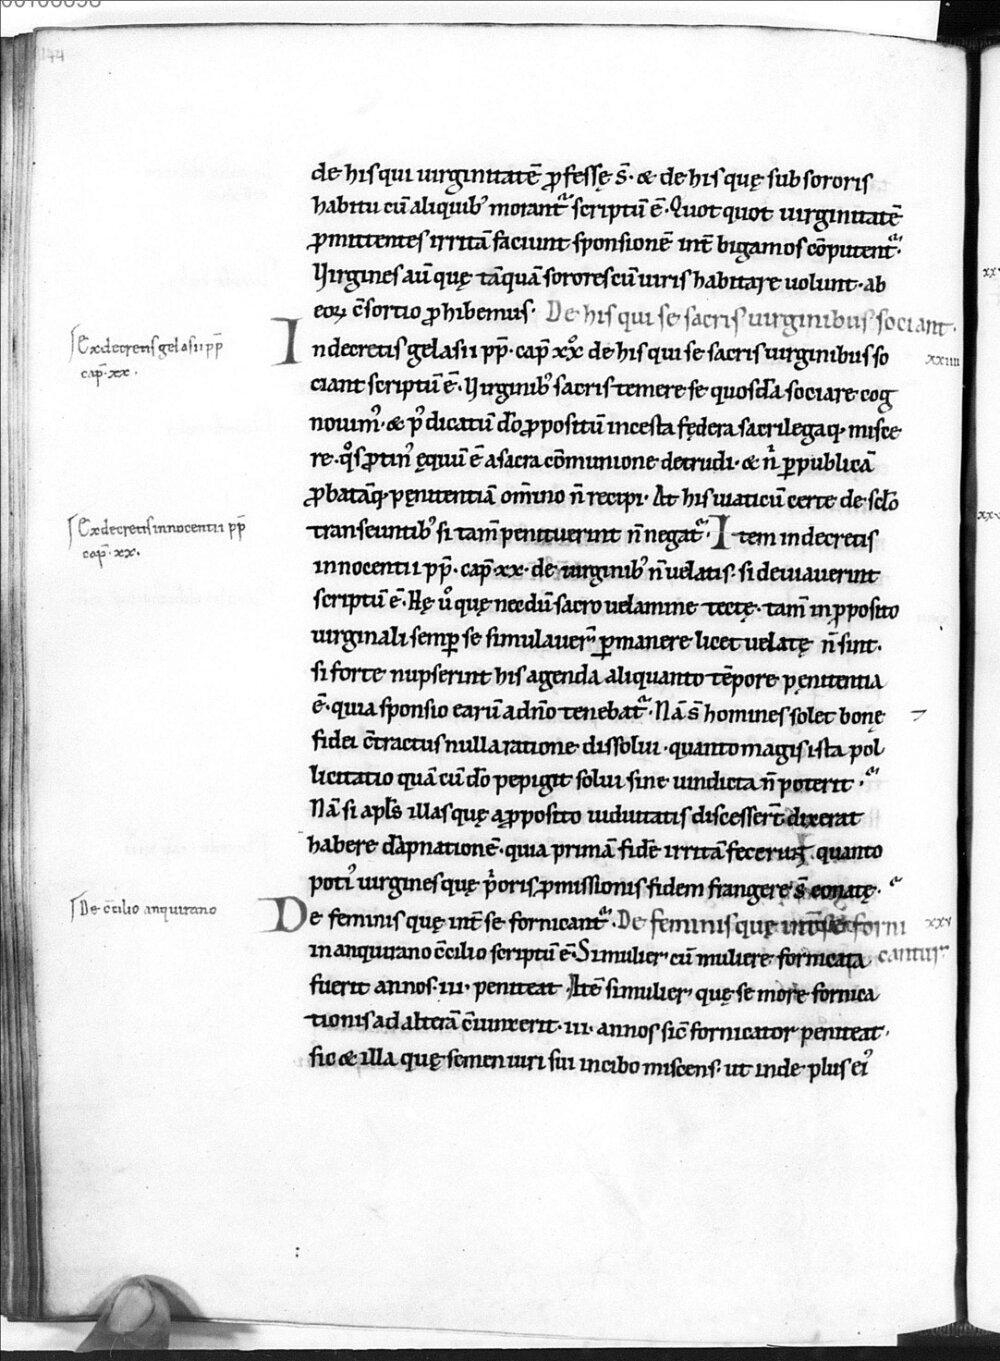 144
de his qui uirginitatē ꝓfessę s̄. & de his quę sub sororis
habitu cū aliquib᾽ morant᷑ scriptū ē. Quot quot uirginitatē
ꝓmittentes irritā faciunt sponsionē int̄ bigamos cōputent᷑.
Virgines aū quę tāquā sorores cū uiris habitare uolunt. ab
eoꝝ c̄sortio ꝓhibemus. De his qui se sacris uirginibus sociant.
Ex decretis gelasii pp̄
cap̄. xx.
In decretis gelasii pp̄. cap̄ xx̊ de his qui se sacris uirginibus so
xxiiii
ciant scriptū ē. Virginib᾽ sacris temere se quosdā sociare cog
nouim᾽. & p᾽dicatū dō ꝓpositū incesta fędera sacrilegaq. misce
re. qͦs ꝓtin᾽ ęquū ē a sacra cōmunione detrudi. & n̄ ꝑ publicā
ꝓbatāq. pęnitentiā om̄ino n̄ recipi. At his uiaticū certe de scl̄o
Ex decretis innocentii pp̄
cap̄. xx.
transeuntib᾽ si tam̄ penituerint n̄ negat᷑. Item in decretis
innocentii pp̄. cap̄. xx. de uirginib᾽ n̄ uelatis. si deuiauerint
scriptū ē. Hę uͦ quę necdū sacro uelamine tectę. tam̄ in ꝓposito
uirginali semꝑ se simulauer̄ ꝑmanere licet uelatę n̄ sint.
si forte nupserint his agenda aliquanto tēpore pęnitentia
ē. quia sponsio earū a dn̄o tenebat᷑. Nā s̄ homines solet bonę
fidei c̄tractus nulla ratione dissolui. quanto magis ista pol
licitatio quā cū dō pepigit solui sine uindicta n̄ poterit.
Nā si apl̄s illas quę a ꝓposito uiduitatis discesser̄t dixerat
habere dāpnationē. quia primā fidē irritā fecerunt. quanto
poti᾽ uirgines quę p᾽oris ꝓmissionis fidem frangere s̄ conatę.
De c̄cilio anquirano
De feminis quę int̄ se fornicant᷑. De feminis quę int̄ se forni
xxv
in anquirano c̄cilio scriptū ē. Si mulier cū muliere fornicata cantur
fuerit annos. iii. peniteat. Itē si mulier quę se more fornica
tionis ad alterā c̄iunxerit. iii. annos sic̄ fornicator peniteat.
sic & illa quę semen uiri sui in cibo miscens. ut inde plus ei᾽